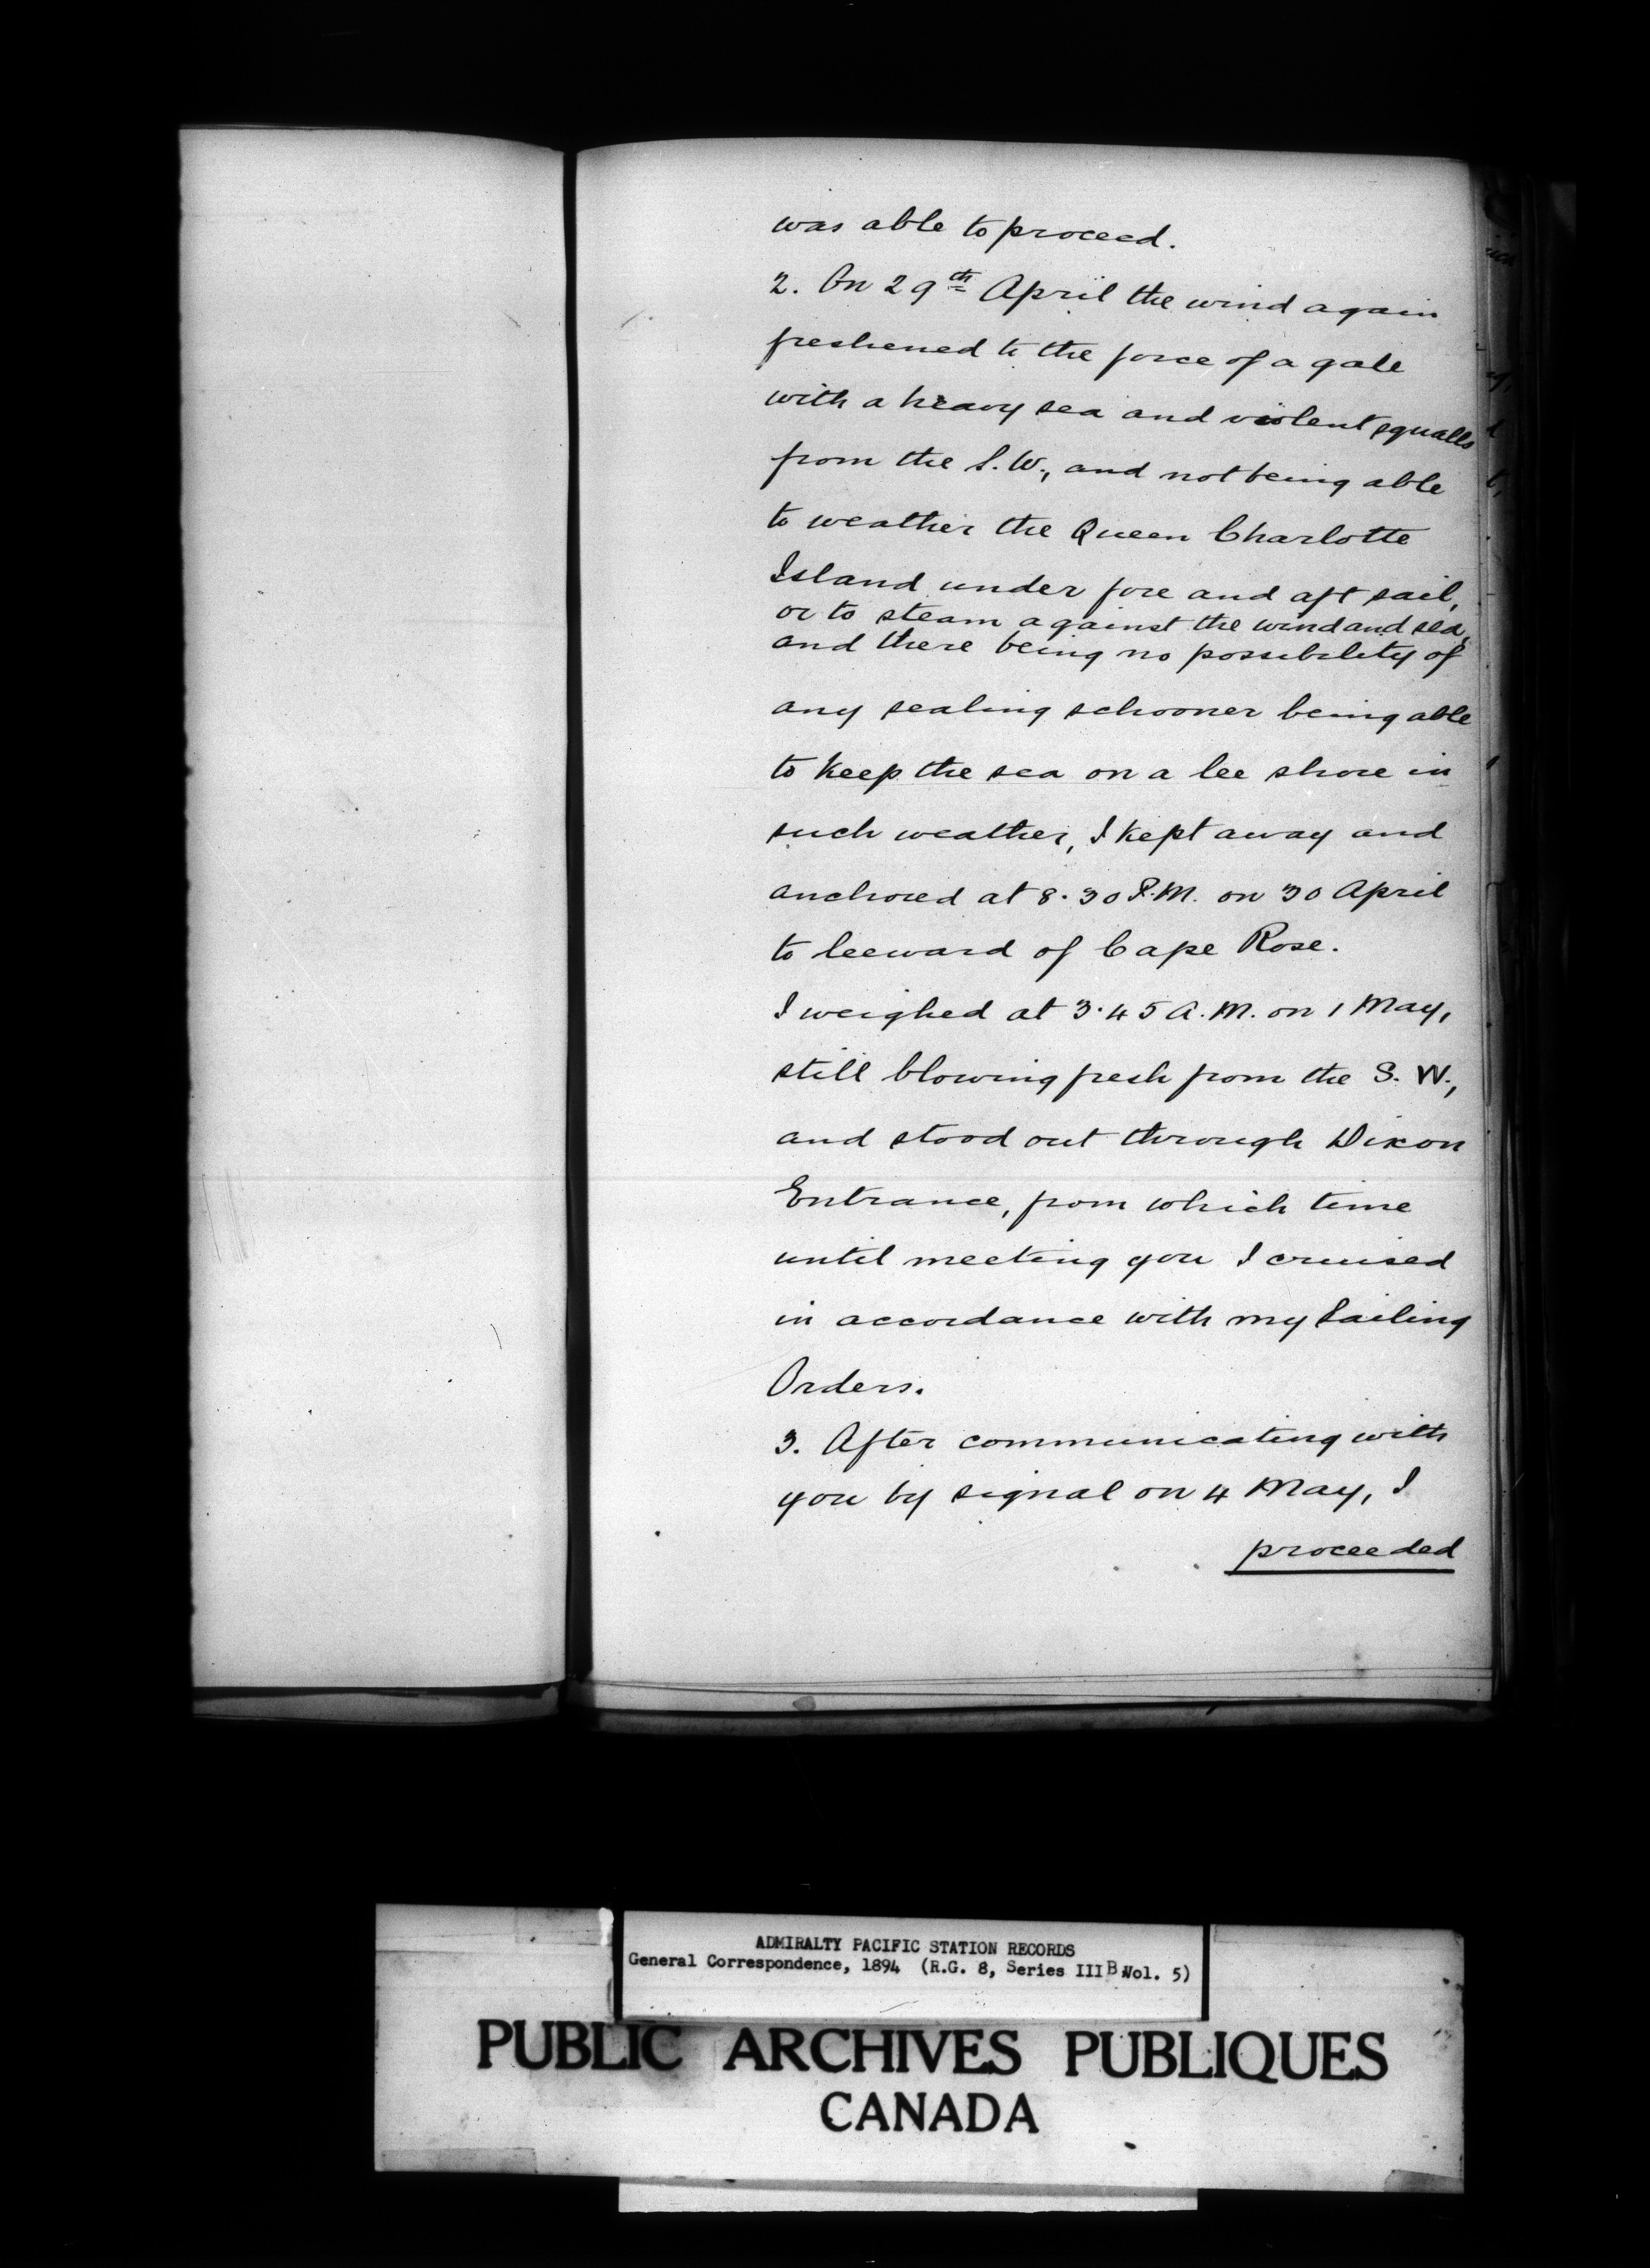 was able to proceed.
2. On 29th April the wind again
freshened to the force of a gale
with a heavy sea and violent squalls
from the S.W., and not being able
to weather the Queen Charlotte
Island under fore and aft sail,
or to steam against the wind and sea,
and there being no possibility of
any sealing schooner being able
to keep the sea on a lee shore in
such weather, I kept away and
anchored at 8.30 P.M. on 30 April
to leeward of Cape Rose.
I weighed at 3.45 A.M. on 1 May,
still blowing fresh from the S. W.,
and stood out through Dixon
Entrance, from which time
until meeting you I cruised
in accordance with my Sailing
Orders.
3. After communicating with
you by signal on 4 May, I
proceeded
ADMIRALTY PACIFIC STATION RECORDS
General Correspondence, 1894 (R.G. 8, Series III B Vol. 5)
PUBLIC ARCHIVES PUBLIQUES
CANADA